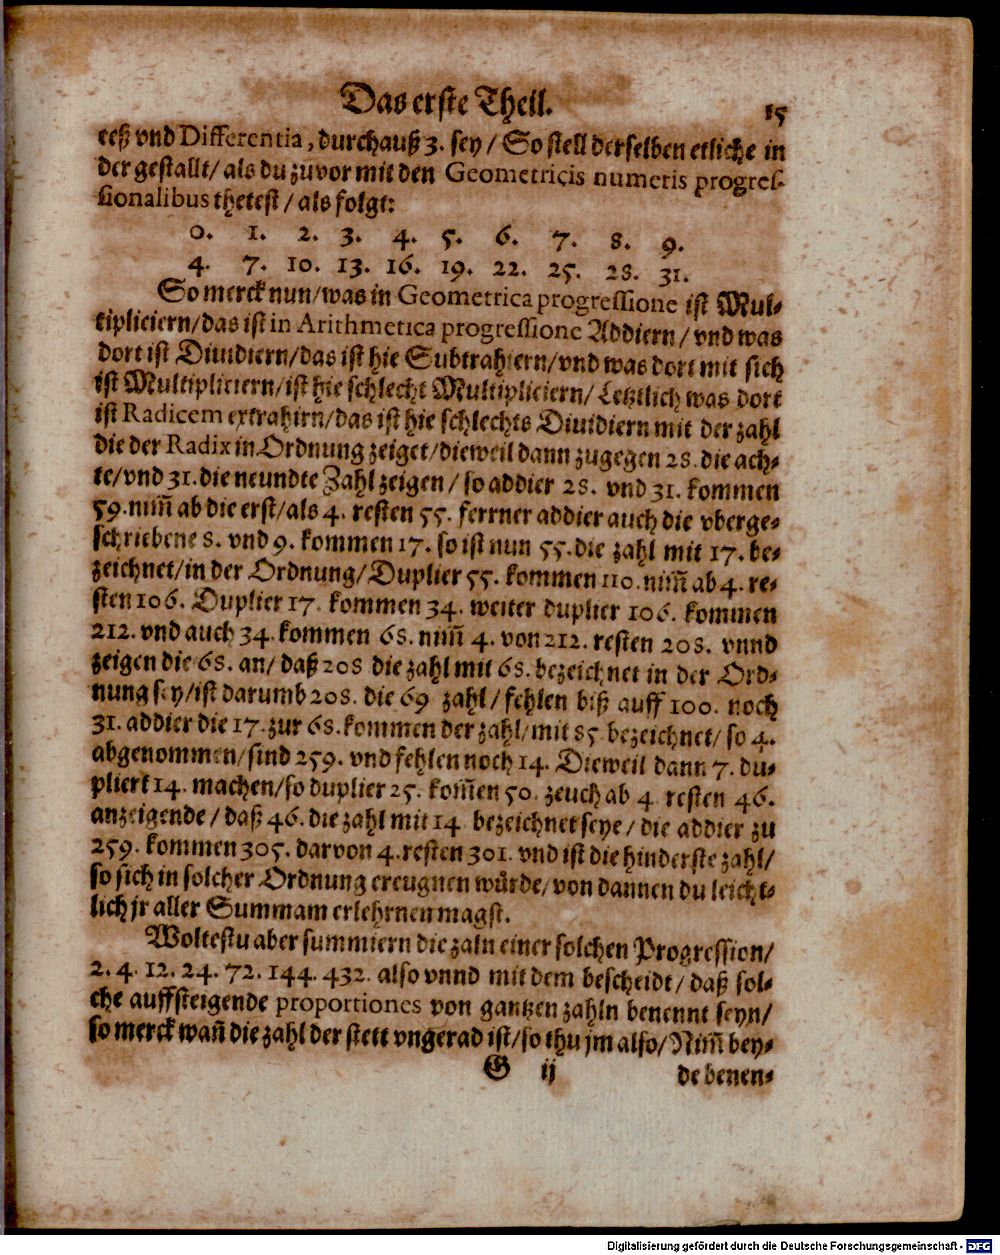 Das erste Theil. 15
ceß vnd Differentia, durchauß 3. sey / So stell derselben etliche in
der gestallt/ als du zuvor mit den Geometricis numeris progres-
sionalibus thetest / als folgt:
0. 1. 2. 3. 4. 5. 6. 7. 8. 9.
4. 7. 10. 13. 16. 19. 22. 25. 28. 31.
So merck nun/was in Geometrica progressione ist Mul-
tipliciern/das ist in Arithmetica progressione Addiern/ vnd was
dort ist Diuidiern/das ist hie Subtrahiern/vnd was dort mit sich
ist Multipliciern/ist hie schlecht Multipliciern/ Letztlich was dort
ist Radicem extrahirn/das ist hie schlechts Diuidiern mit der zahl
die der Radix in Ordnung zeiget/dieweil dann zugegen 28. die ach-
te/vnd 31. die neundte Zahl zeigen / so addier 28. vnd 31. kommen
59. nim̃ ab die erst/als 4. resten 55. ferrner addier auch die vberge-
schriebene 8. vnd 9. kommen 17. so ist nun 55. die zahl mit 17. be-
zeichnet/in der Ordnung/Duplier 55. kommen 110. nim̃ ab 4. re-
sten 106. Duplier 17. kommen 34. weiter duplier 106. kommen
212. vnd auch 34. kommen 68. nim̃ 4. von 212. resten 208. vnnd
zeigen die 68. an/ daß 208 die zahl mit 68. bezeichnet in der Ord-
nung sey/ist darumb 208. die 69 zahl/ fehlen biß auff 100. noch
31. addier die 17. zur 68. kommen der zahl/mit 85 bezeichnet/ so 4.
abgenommen/sind 259. vnd fehlen noch 14. Dieweil dann 7. du-
pliert 14. machen/so duplier 25. kom̃en 50. zeuch ab 4. resten 46.
anzeigende/ daß 46. die zahl mit 14 bezeichnet seye/ die addier zu
259. kommen 305. darvon 4. resten 301. vnd ist die hinderste zahl/
so sich in solcher Ordnung ereugnen würde/von dannen du leicht-
lich jr aller Summam erlehrnen magst.
Woltestu aber summiern die zaln einer solchen Progression/
2. 4. 12. 24. 72. 144. 432. also vnnd mit dem bescheidt/ daß sol-
che auffsteigende proportiones von gantzen zahln benennt seyn/
so merck wan̄ die zahl der stett vngerad ist/so thu jm also/Nim̃ bey-
G ij de benen-
Digitalisierung gefördert durch die Deutsche Forschungsgemeinschaft - DFG